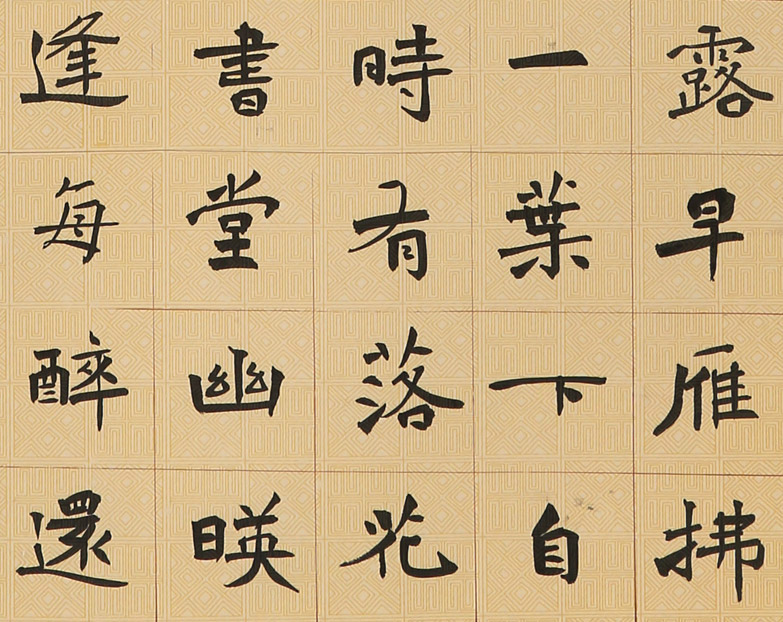 露早雁拂
一葉下自
時有落花
書堂幽暎
逢每醉還